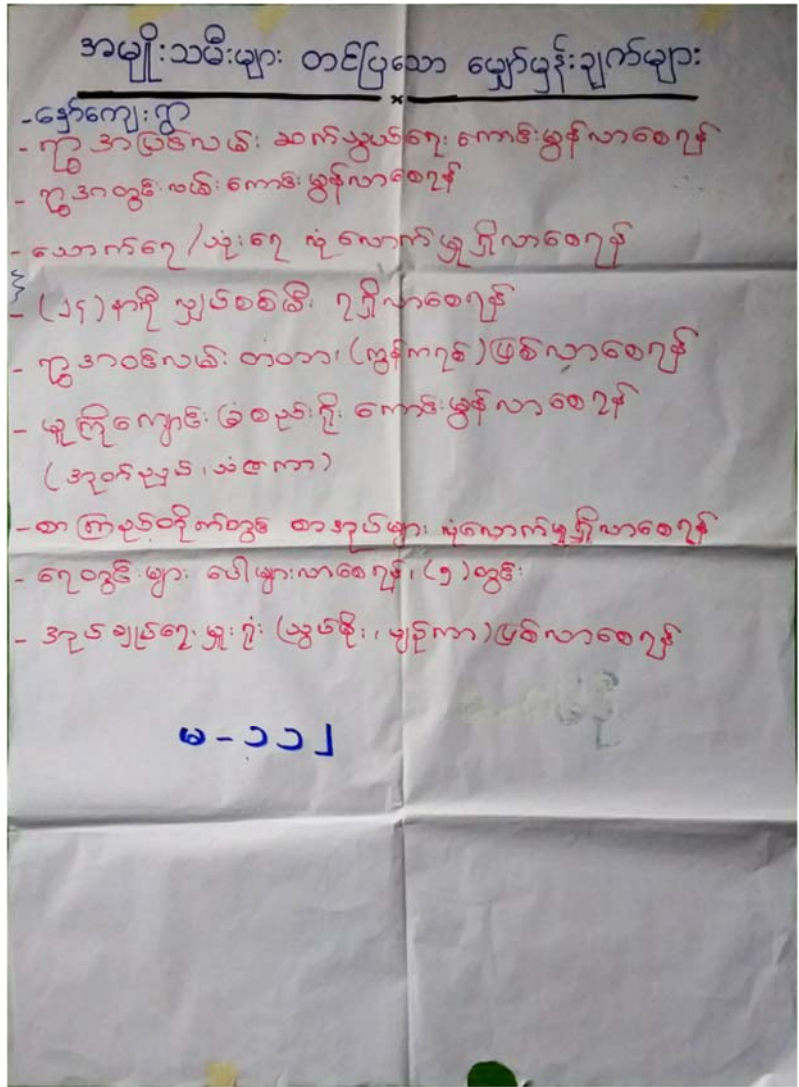 အမျိုးသမီးများ တင်ပြသော မျှော်မှန်းချက်များ
-နှော်ကျေးရွာ
- ရွာအပြင်လမ်း ဆက်သွယ်ရေး ကောင်းမွန်လာစေရန်
- ရွာအတွင်းလမ်းကောင်းမွန်လာစေရန်
- သောက်ရေ/သုံးရေ လုံလောက်မှုရှိလာစေရန်
- (၂၄)နာရီ လျှပ်စစ်မီး ရရှိလာစေရန်
- ရွာအဝင်လမ်း တံတား၊ (ကွန်ကရစ်)ဖြစ်လာစေရန်
- မူကြိုကျောင်း ခြံစည်းရိုး ကောင်းမွန်လာစေရန်
(အုတ်ညှပ်၊သံဇကာ)
-စာကြည့်တိုက်တွင် စာအုပ်များ လုံလောက်မှုရှိလာစေရန်
- ရေတွင်းများ ပေါများလာစေရန်၊(၅)တွင်း
- အုပ်ချုပ်ရေးမှူးရုံး (သွပ်မိုး၊ပျဉ်ကာ)ဖြစ်လာစေရန်
မ-၁၁၂